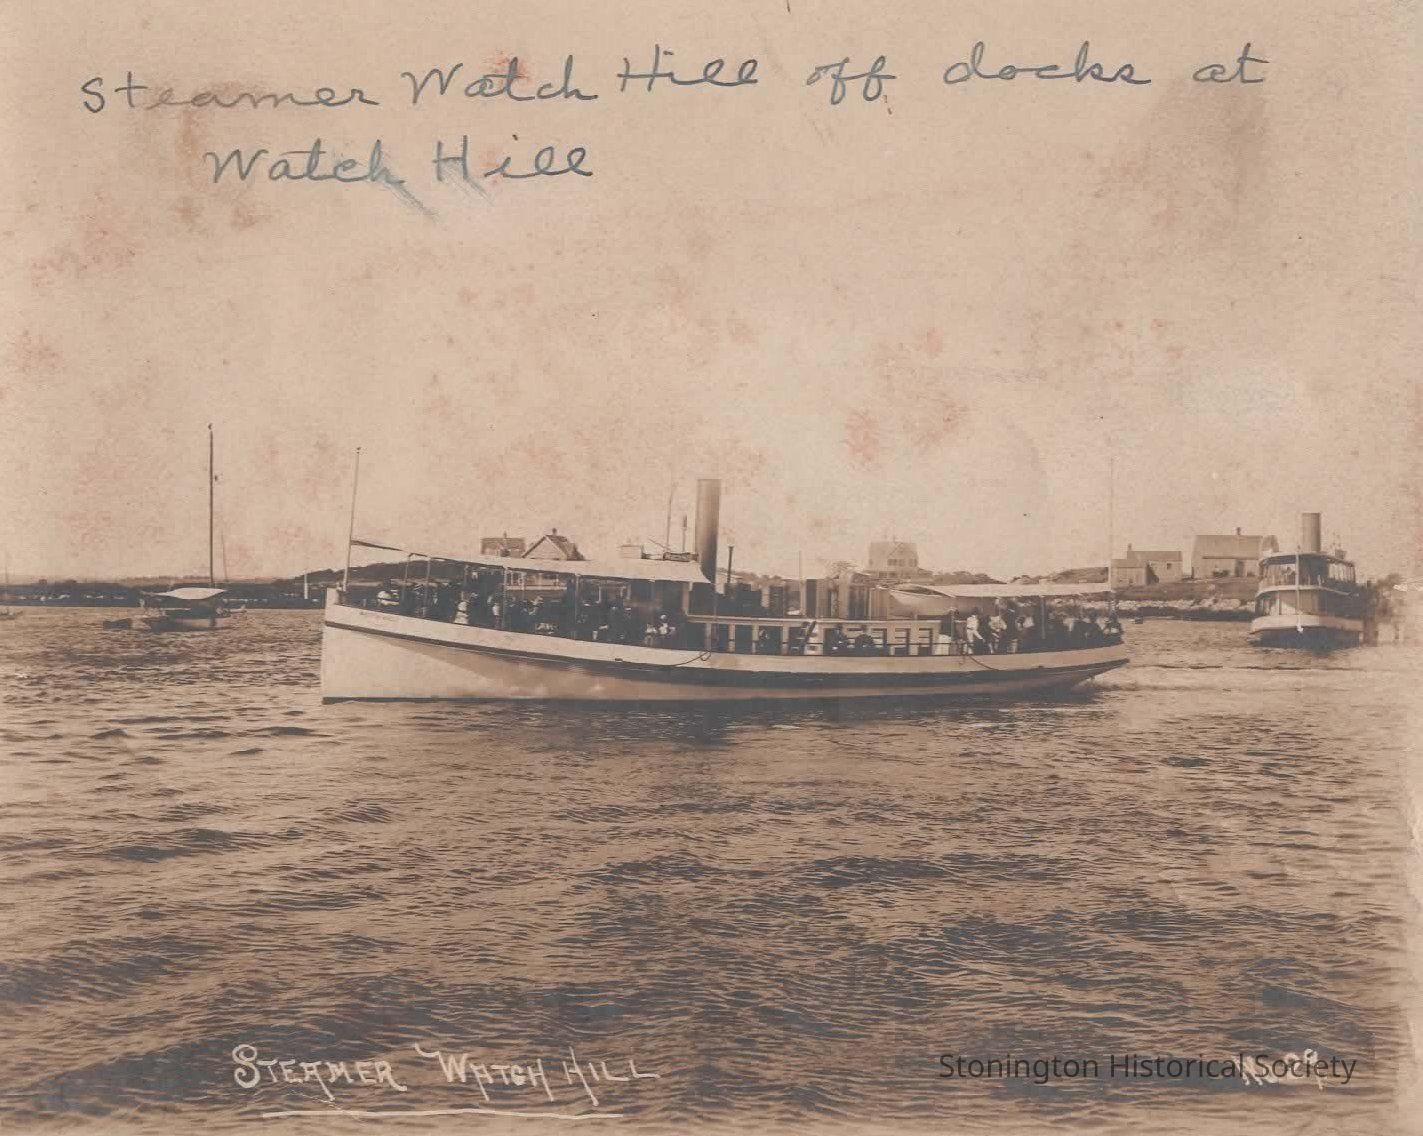 Steamer Watch Hill off docks at
Watch Hill
STEAMER WATCH HILL
Stonington Historical Society